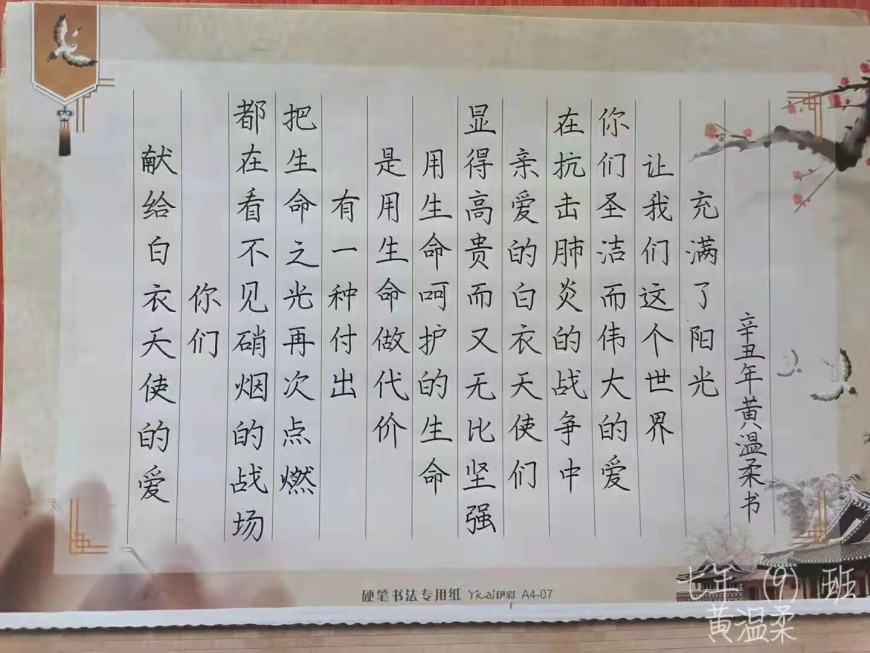 献给白衣天使的爱
你们
都在看不见硝烟的战场
把生命之光再次点燃
有一种付出
是用生命做代价
用生命呵护的生命
显得高贵而又无比坚强
亲爱的白衣天使们
在抗击肺炎的战争中
你们圣洁而伟大的爱
让我们这个世界
充满了阳光
辛丑年黄温柔书
硬笔书法专用纸 Yicai伊彩 A4-07
七年（9）班
黄温柔